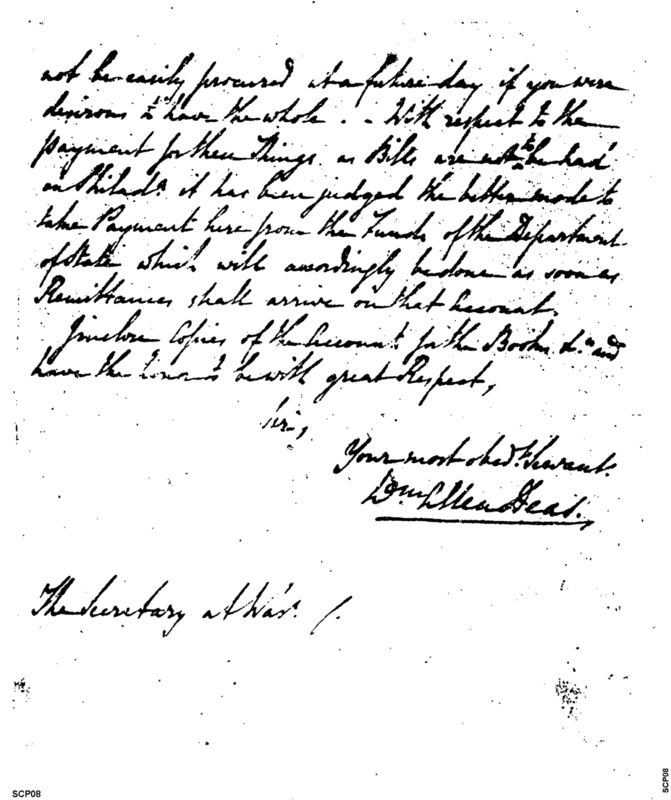 not be easily procured at a future day if you were
desirous to have the whole. - With respect to the
payment for these Things, as Bills are not to be had
in Philad.a it has been judged the better mode to
take Payment here from the Funds of the Department
of State which will accordingly be done as soon as
Remittances shall arrive on that Account.
I inclose Copies of the Accounts for the Books &.a and
have the honor to be with great Respect,
Sir,
Your most obed.t Servant.
Wm Allen Deas.
The Secretary at War. /.
SCP08
SCP08